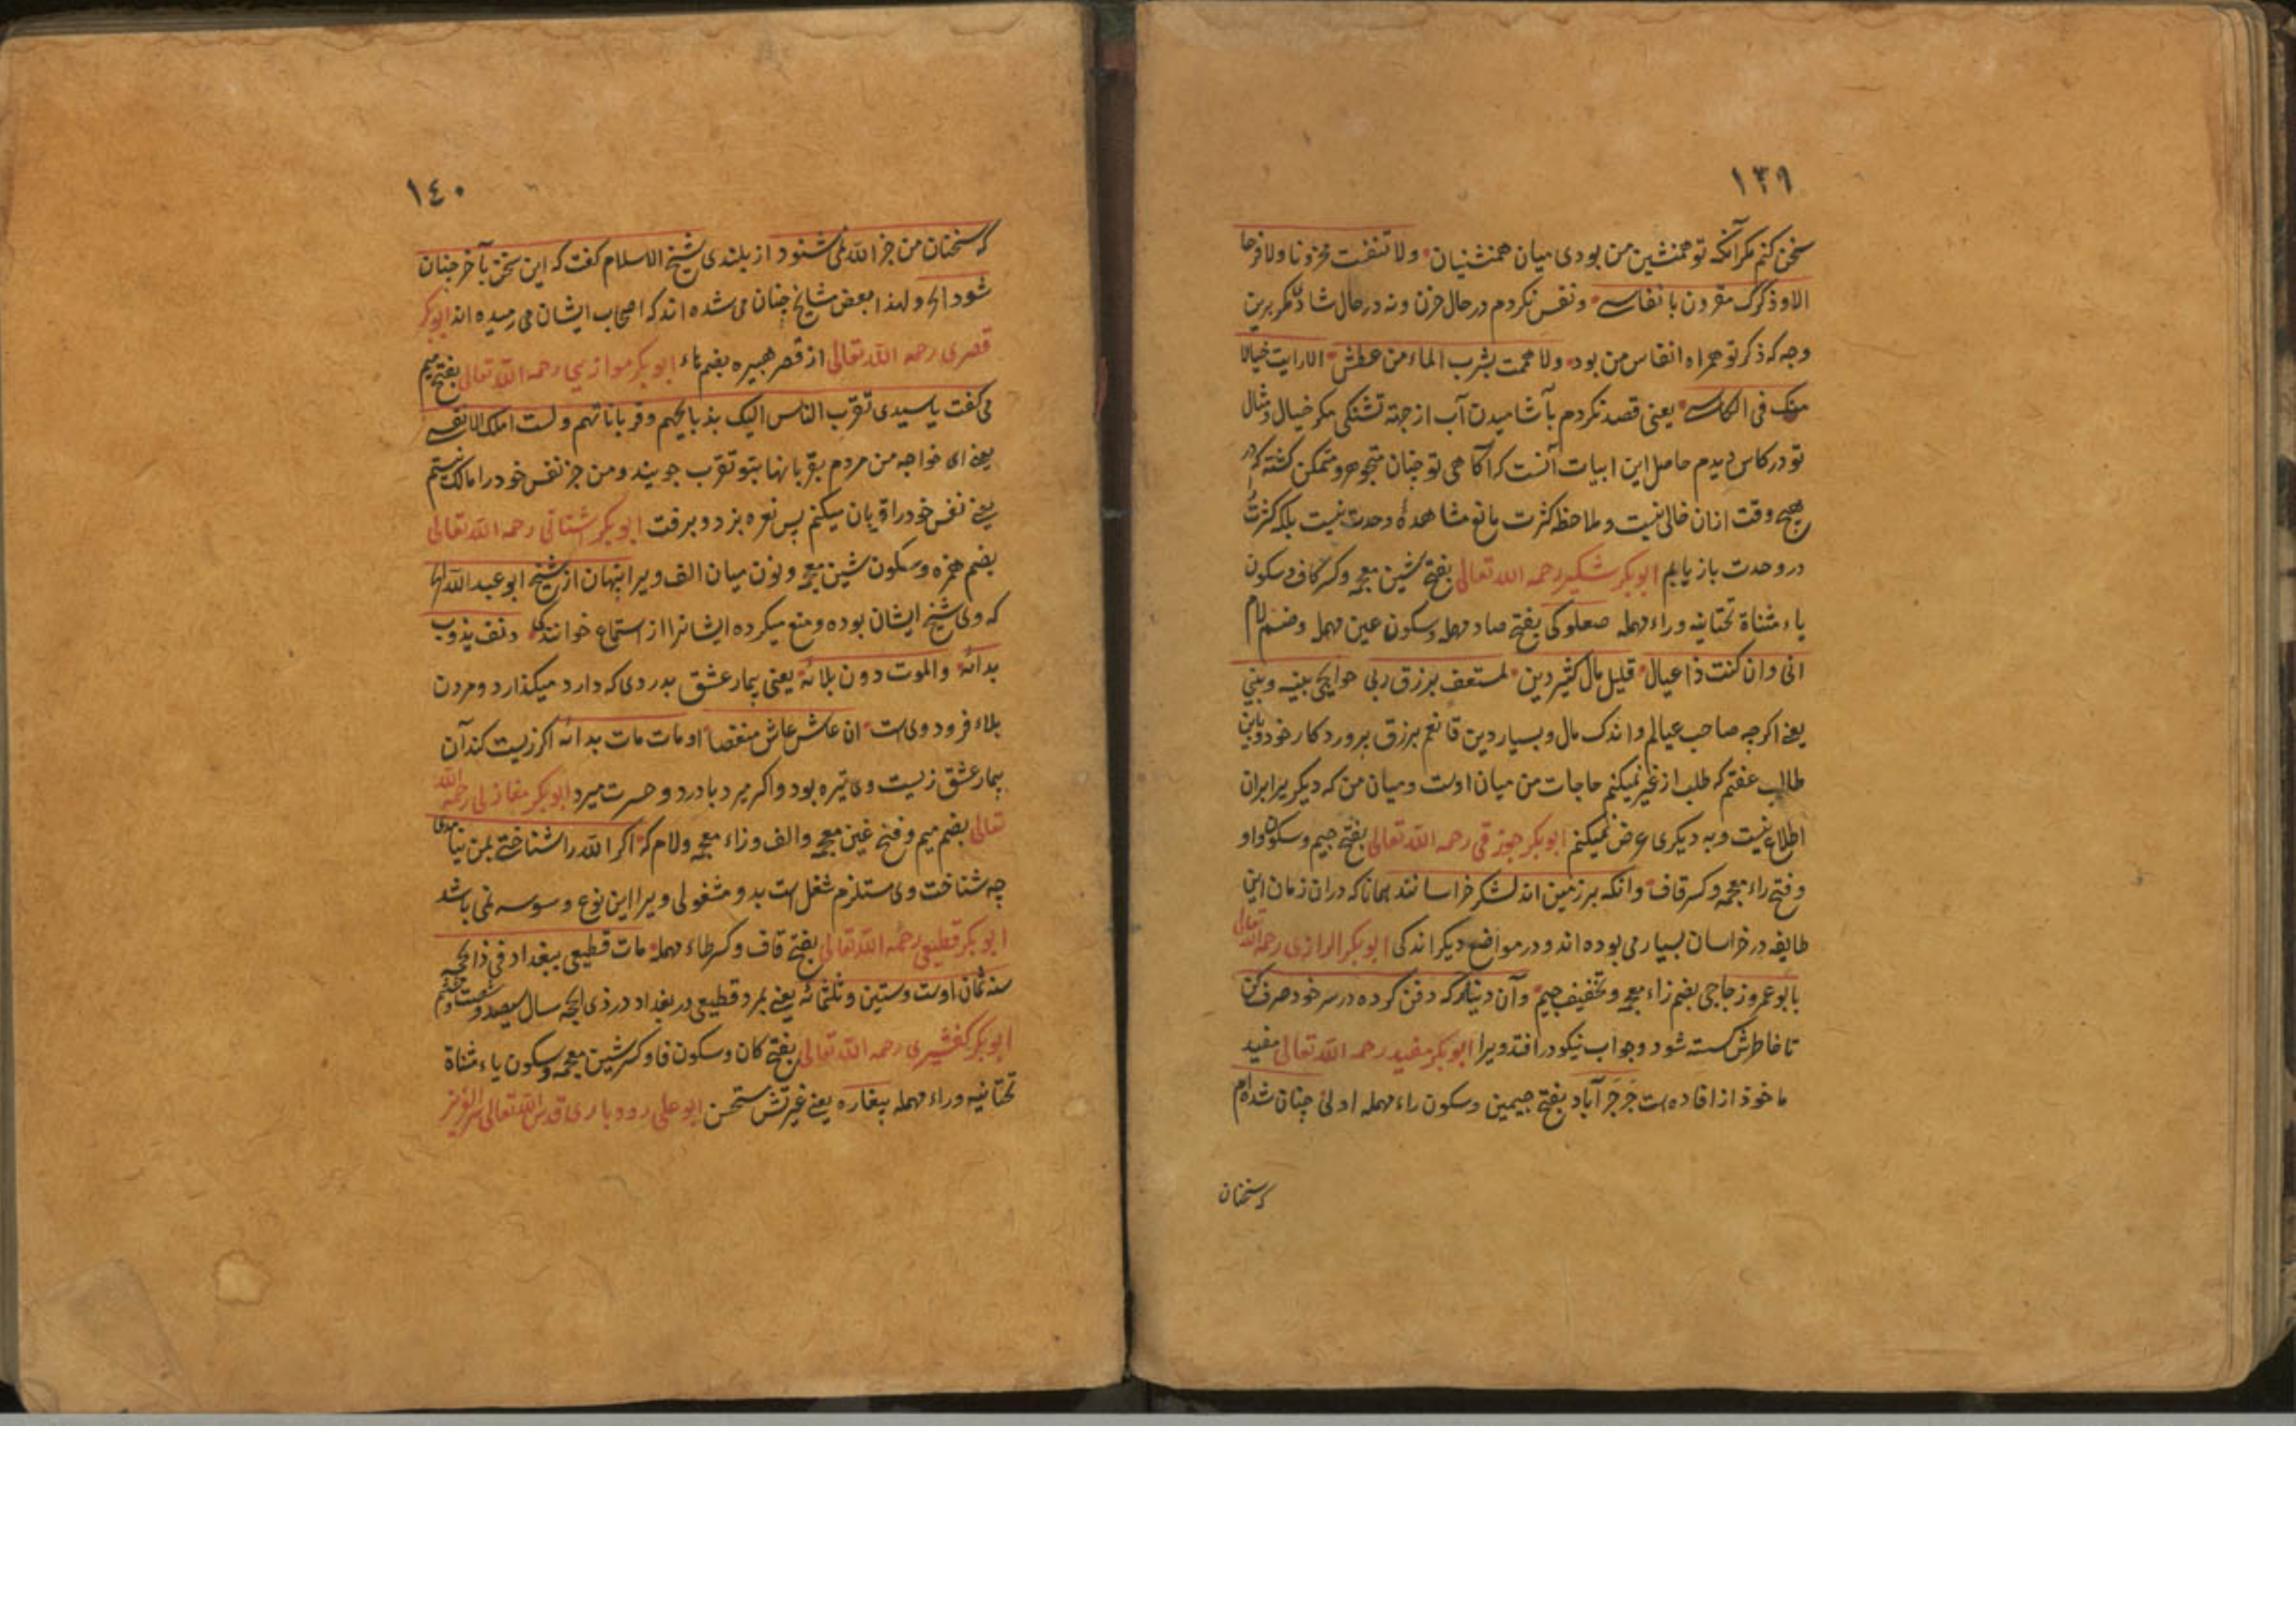 ١٣٩
سخن کنم مکر آنکه تو همنشین من بودی میان همنشنیان ولا تنفت محزونا ولا فرحا
الا وذکرک مقرون بانفاسے ونفس نکردم در حال حزن ونه در حال شادی مکر برین
وجه که ذکر تو همراه انفاس من بود ولا هممت بشرب الماء من عطش الا رایت خیالا
منک فی الکاسے یعنی قصد نکردم بآشامیدن آب از جهة تشنکی مکر خیال ومثال
تو در کاس دیدم حاصل این ابیات آنست که آکاهی تو جنان متجوهر ومتمکن کشته که در
هیج وقت ازان خالی نیست و ملاحظه کثرت مانع مشاهدهٔ وحدت نیست بلکه کثرت
در وحدت باز یابم ابوبکر شکیر رحمه الله تعالی بفتح شین معجمه وکسر کاف وسکون
یاء مثناة تحتانیه وراء مهمله صعلوکی بفتح صاد مهمله وسکون عین مهمله وضم لام
انی وان کنت ذا عیال قلیل مال کثیر دین لمستعف برزق ربی حوایجی بینه وبینی
یعنے اکرجه صاحب عیالم واندک مال وبسیار دین قانعم برزق بروردکار خود وباین
طالب عفتم که طلب از غیر نمیکنم حاجات من میان اوست ومیان من که دیکریرا بران
اطلاع نیست وبه دیکری عرض نمیکنم ابوبکر جوزقی رحمه الله تعالی بفتح جیم وسکون واو
وفتح زاء معجمه وکسر قاف وانکه بر زمین اند لشکر خراسانند همانا که دران زمان این
طایفه در خراسان بسیار می بوده اند و در مواضع دیکر اندکی ابوبکر الرازی رحمه الله تعالی
بابوعمرو زجاجی بضم زاء معجمه وتخفیف جیم وآن دینار که دفن کرده در سر خود صرف کن
تا خاطرش کسسته شود وجواب نیکو در افتد ویرا ابوبکر مفید رحمه الله تعالی مفید
ماخوذ از افاده است جَرجَرآباد بفتح جیمین وسکون راء مهمله اولی جنان شده ام
که سخنان
١٤٠
که سخنان من جز الله نمی شنود از بلندی شیخ الاسلام کفت که این سخن بآخر جنان
شود الخ ولهذا بعض مشایخ جنان می شده اند که اصحاب ایشان می رمیده اند ابوبکر
قصری رحمه الله تعالی از قصر هبیره بضم هاء ابوبکر موازیی رحمه الله تعالی بفتح میم
می کفت یا سیدی تقرب الناس الیک بذبایحهم وقرباناتهم ولست املک الا نفسے
یعنے ای خواجه من مردم بقربانها بتو تقرب جویند ومن جز نفس خود را مالک نیستم
یعنے نفس خود را قربان میکنم پس نعره بزد و برفت ابوبکر اشنانی رحمه الله تعالی
بضم همزه وسکون شین معجمه ونون میان الف ویرا بنهان از شیخ ابو عبدالله الخ
که وی شیخ ایشان بوده ومنع میکرده ایشانرا از استماع خوانندکی دنف یذوب
بدائهٖ والموت دون بلائهٖ یعنی بیمار عشق بدردی که دارد میکذارد ومردن
بلاء فرود وی است ان عاش عاش منغصا او مات مات بدائهٖ اکر زیست کند آن
بیمار عشق زیست وی تیره بود واکر میرد با درد وحسرت میرد ابوبکر مغازلی رحمه الله
تعالی بضم میم وفتح غین معجمه والف وزاء معجمه ولام که اکر الله را شناختے بمن نیامدی
چه شناخت وی مستلزم شغل است بدو ومشغولی ویرا این نوع وسوسه نمی باشد
ابوبکر قطیعی رحمه الله تعالی بفتح قاف وکسر طاء مهمله مات قطیعی ببغداد فی ذالحجه
سنه ثمان اوست وستین وثلثمائه یعنے بمرد قطیعی در بغداد در ذی الحجه سال سیصد وشصت وهشتم
ابوبکر کفشیری رحمه الله تعالی بفتح کاف وسکون فا وکسر شین معجمه وسکون یاء مثناة
تحتانیه وراء مهمله بیغاره یعنے غیرتش مستحسن ابوعلی رودباری قدس الله تعالی سره العزیز